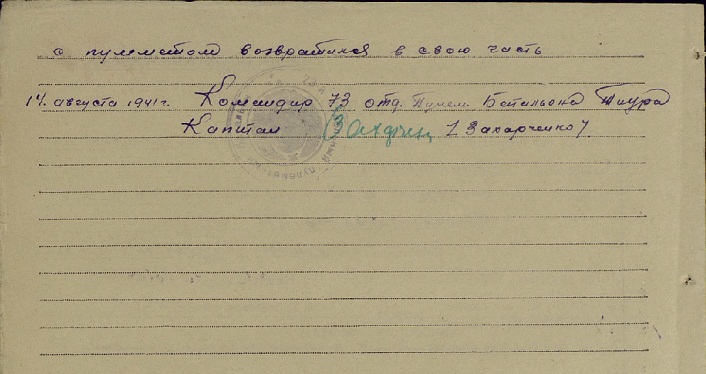 с пулеметом возвратился в свою часть
14. августа 1941 г. Командир 73 отд. Пулем. Батальона Тиура
Капитан Захарчен /Захарченко/